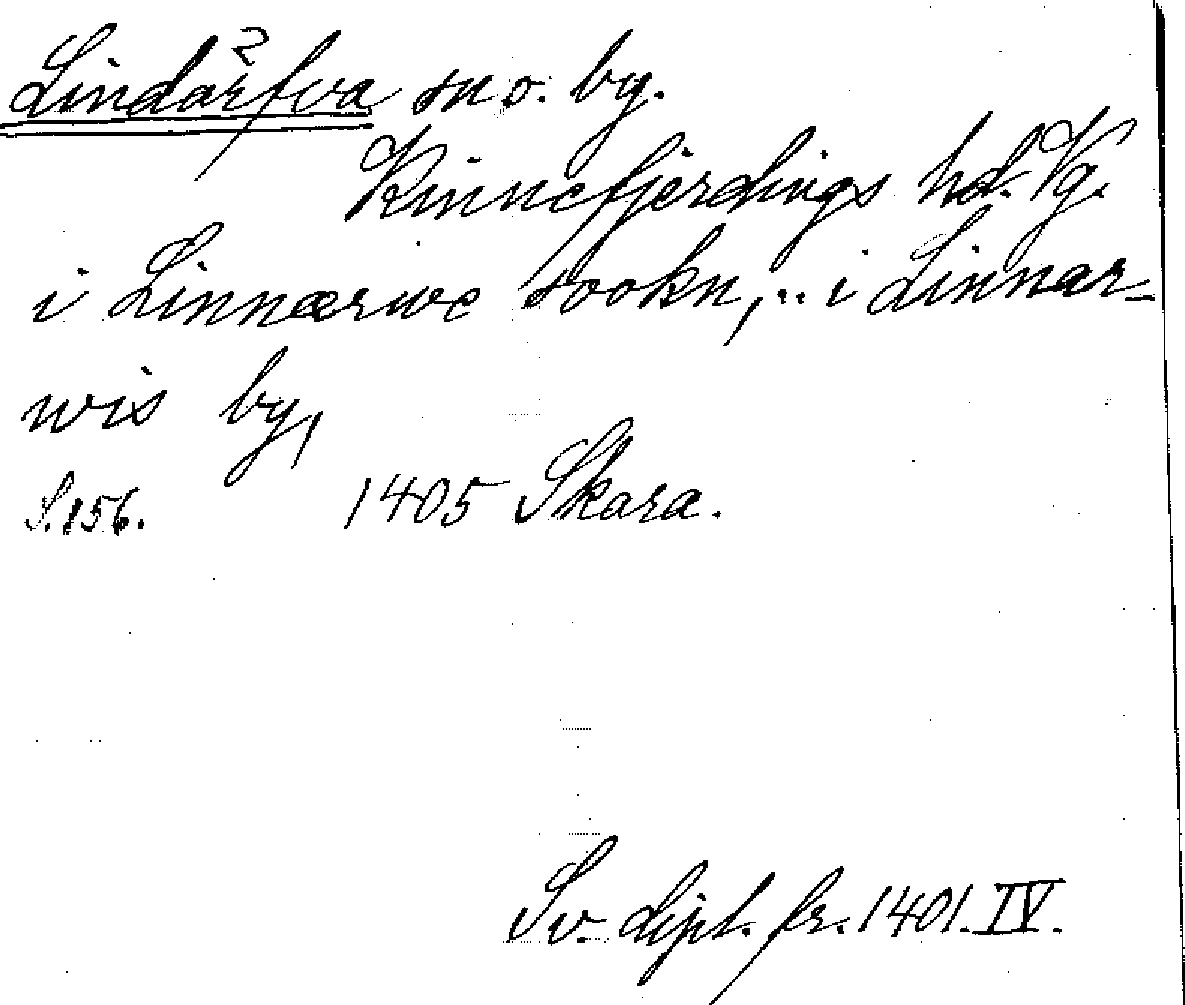 Lindärfva sn o. by.
Kinnefjerdings hd. Vg.
i Linnærwe sookn, .. i Linnar-
wis by,
S. 156. 1405 Skara.
Sv. dipl. fr. 1401. IV.